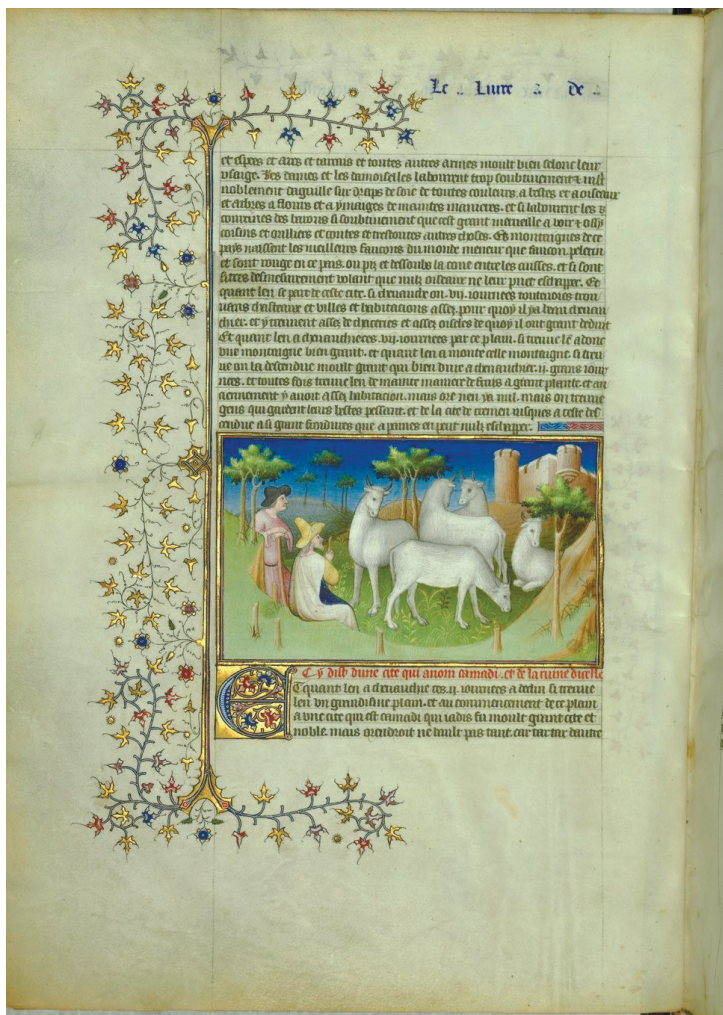 Le .. Livre .. de ..
et espees et ars et turcuis et toutes autres armes moult bien selonc leur
usaige. Les dames et les damoiselles labourent trop soubtiuement et
noblement daguille sur draps de soie de toutes couleurs. a bestes et a oiseaux
et arbres a flours et a ymaiges de maintes manieres. et si labourent les
courtines des barons si soubtiuement que cest grant merueille a voir
coisins et et coutes et trestoutes autres choses. Es montaignes de ce
pays naissent les meilleurs faucons du monde meneur que faucon pelerin
et sont rouge en ce pens. ou piz et dessoubz la coue entre les cuisses. et si sont
si tres desmesureement volant que nulz oiseaux ne leur puet eschapper. Et
quant len se part de ceste cite. si cheuauche on .vij. iournees toutevoies trou
uans chasteaux et villes et habitacions assez. pour quoy il ya beau cheuau
chier. et y treuuent assez de chaceries et assez oiseles de quoy il ont grant deduit
Et quant len a cheuauchees .vij. iournees par ce plain. si treuue len adonc
vne montaigne bien grant. et quant len a monte celle montaigne. si treu
ue on la descendue moult grant qui bien dure a cheuauchier .ij. grans iour
nees. et toutes fois treuue len de mainte maniere de fruis a grant plante. et an
ciennement y auoit assez habitacion. mais ore nen ya nul. mais on treuue
gens qui gardent leurs bestes pessant. et de la cite de cremen iusques a ceste des
cendue a si grant froidures que a paines en puet nulz eschapper.
Cy dist dune cite qui a nom camadi. et de la ruine dicelle
Et quant len a cheuauchie ces .ij. iournees a declin si treuue
len vn grandisme plain. et au commencement de ce plain
a vne cite qui est camadi qui iadis fu moult grant cite et
noble. mais orendroit ne vault pas tant. car tartar dautre